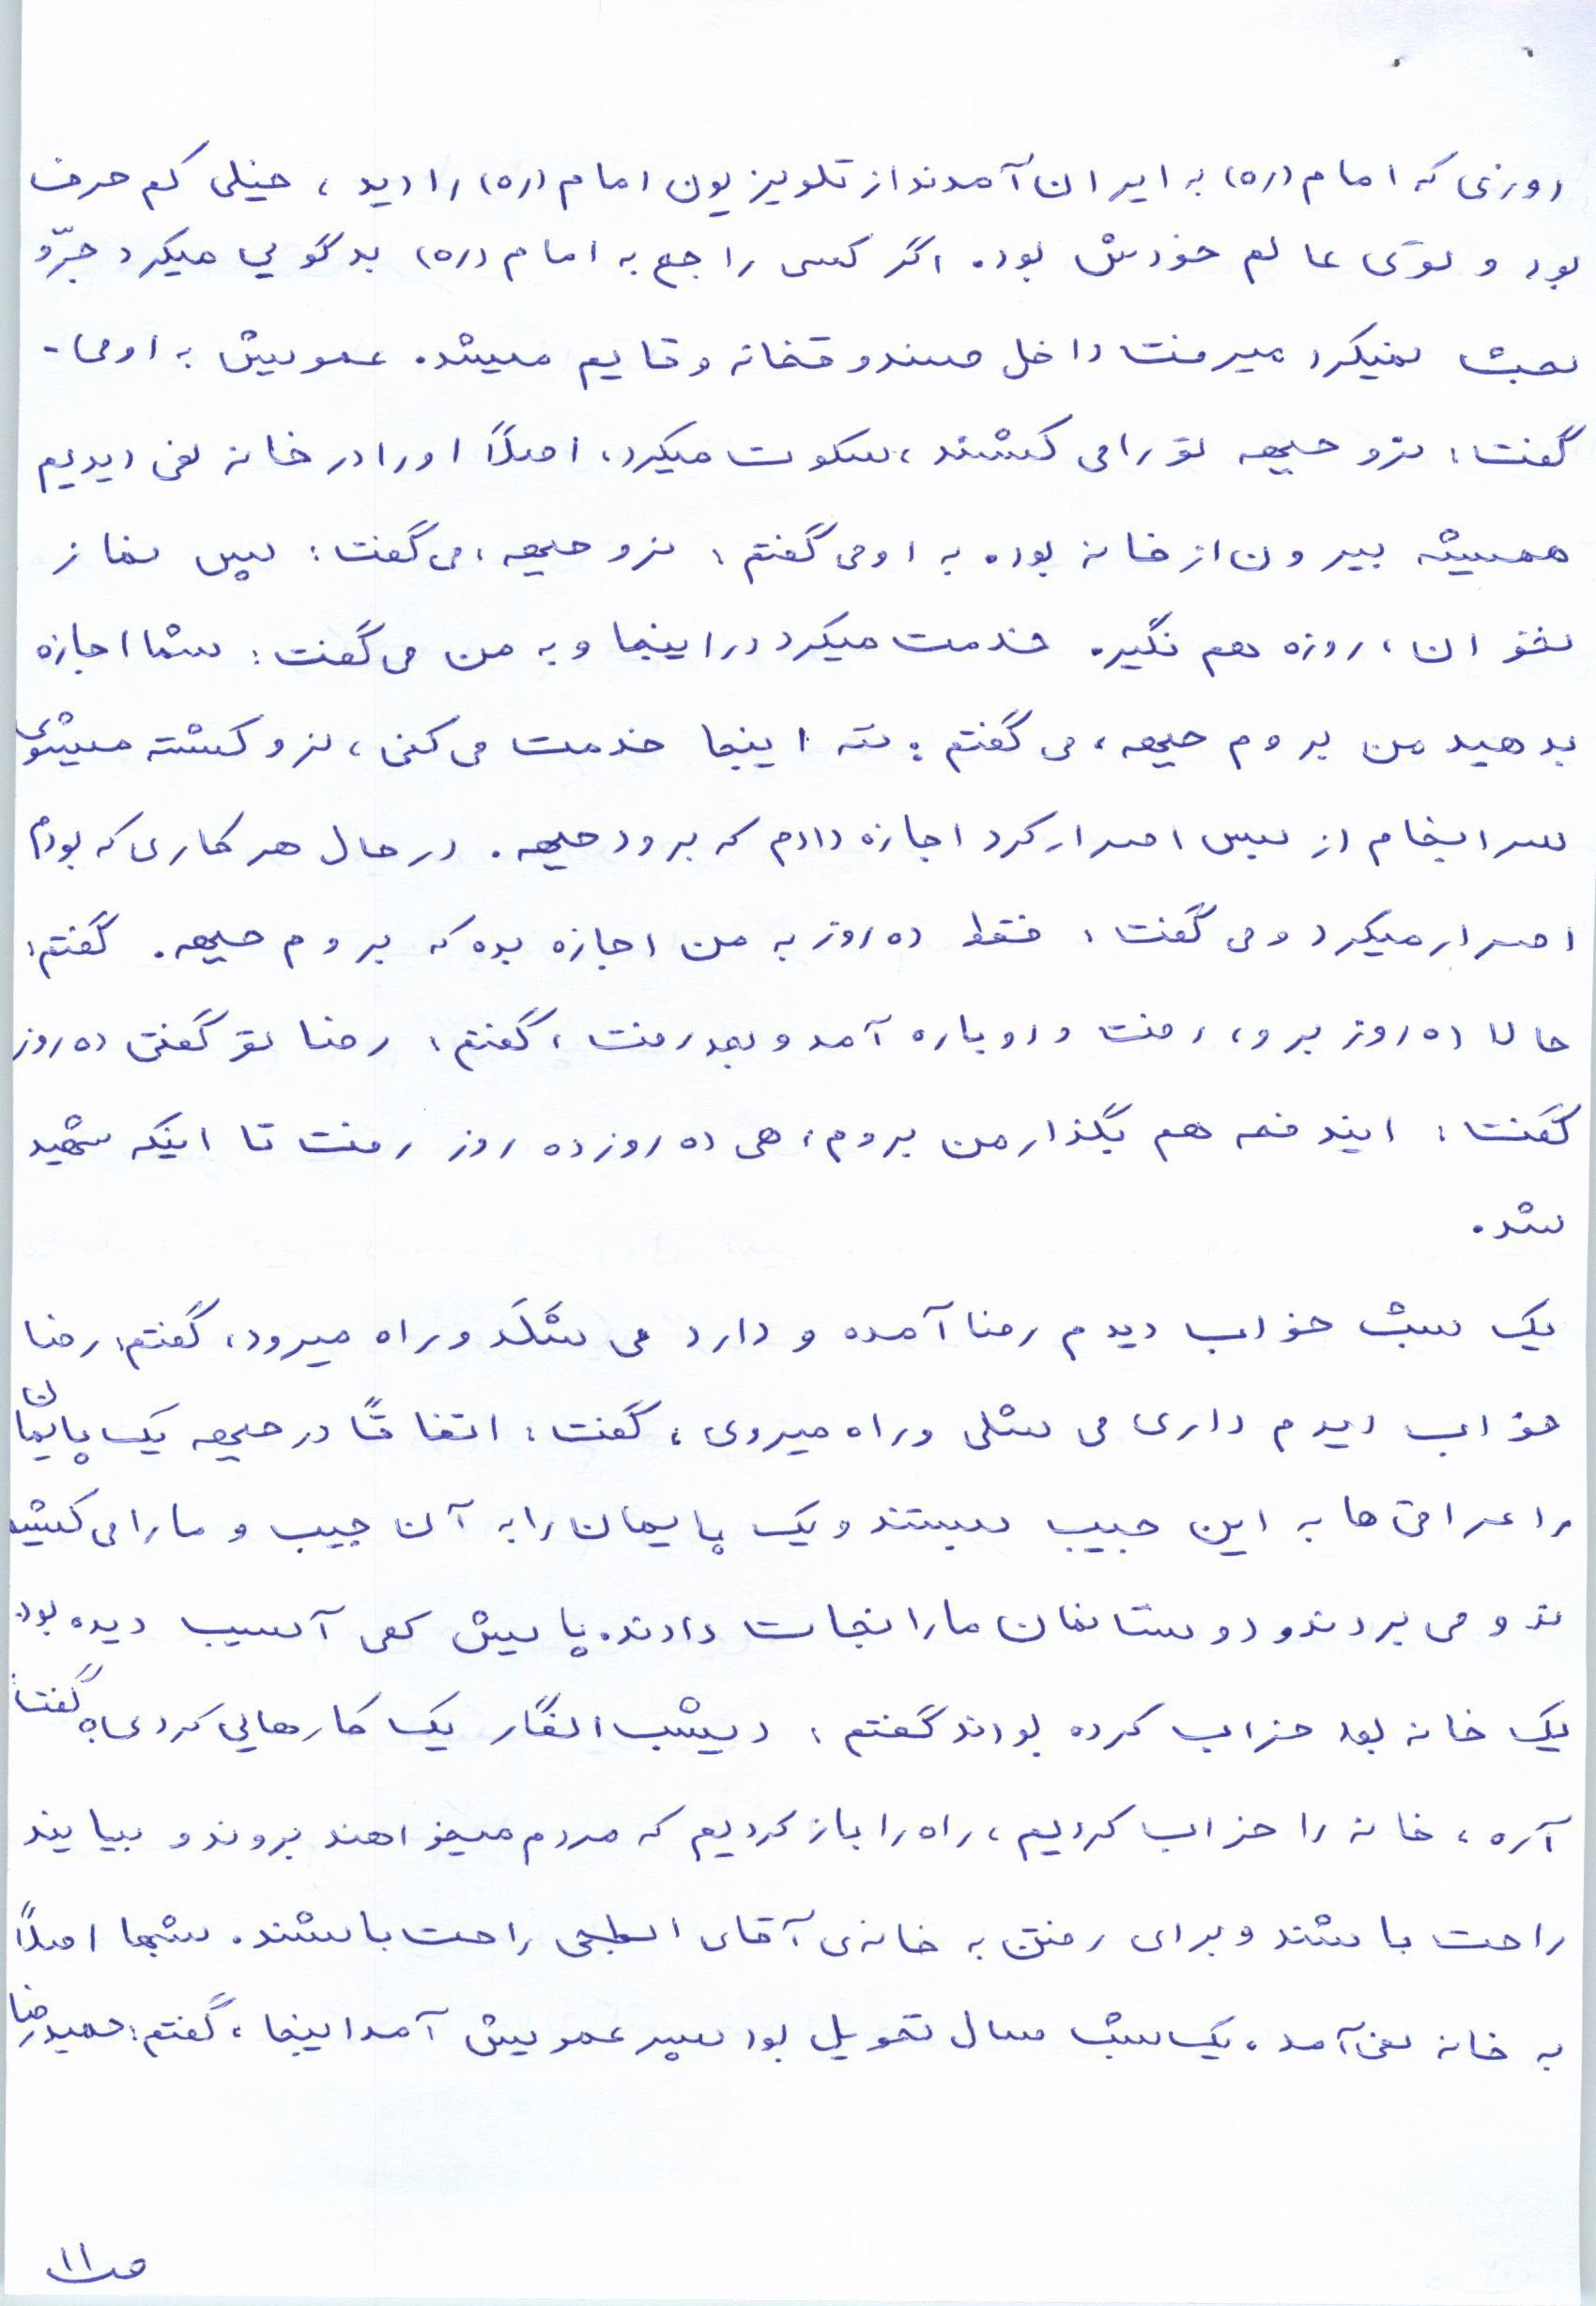 روزی که امام (ره) به ایران آمدند از تلویزیون امام (ره) را دید ، خیلی کم حرف
بود و توی عالم خودش بود. اگر کسی راجع به امام (ره) بدگویی میکرد جرّو
بحث نمیکرد میرفت داخل صندوقخانه و قایم میشد. عمویش به او می-
گفت : نرو جبهه تو را می کشند ، سکوت میکرد، اصلاً او را در خانه نمی دیدیم
همیشه بیرون از خانه بود. به او می گفتم : نرو جبهه ، می گفت : پس نماز
نخوان ، روزه هم نگیر. خدمت میکرد در اینجا و به من می گفت : شما اجازه
بدهید من بروم جبهه ، می گفتم : نه اینجا خدمت می کنی ، نرو کشته میشوی
سرانجام از بس اصرار کرد اجازه دادم که برود جبهه . در حال هر کاری که بودم
اصرار میکرد و می گفت : فقط ده روز به من اجازه بده که بروم جبهه . گفتم :
حالا ده روز برو ، رفت و دوباره آمد و بعد رفت ، گفتم : رضا تو گفتی ده روز
گفت : ایندفعه هم بگذار من بروم ، هی ده روز ده روز رفت تا اینکه شهید
شد .
یک شب خواب دیدم رضا آمده و دارد می شَلَد و راه میرود ، گفتم : رضا
خواب دیدم داری می شلی و راه میروی ، گفت : اتفاقاً در جبهه یک پایمان
را عراقی ها به این جیپ بستند و یک پایمان را به آن جیپ و ما را می کشید
ند و می بردند و دوستانمان ما را نجات دادند. پایش کمی آسیب دیده بود.
یک خانه بود خراب کرده بودند گفتم : دیشب انگار یک کارهایی کردی؟ گفت :
آره ، خانه را خراب کردیم ، راه را باز کردیم که مردم میخواهند بروند و بیایند
راحت باشند و برای رفتن به خانه ی آقای راحت باشند. شبها اصلاً
به خانه نمی آمد . یک شب سال تحویل بود پسر عمویش آمد اینجا ، گفتم : حمیدرضا
ص ۱۱